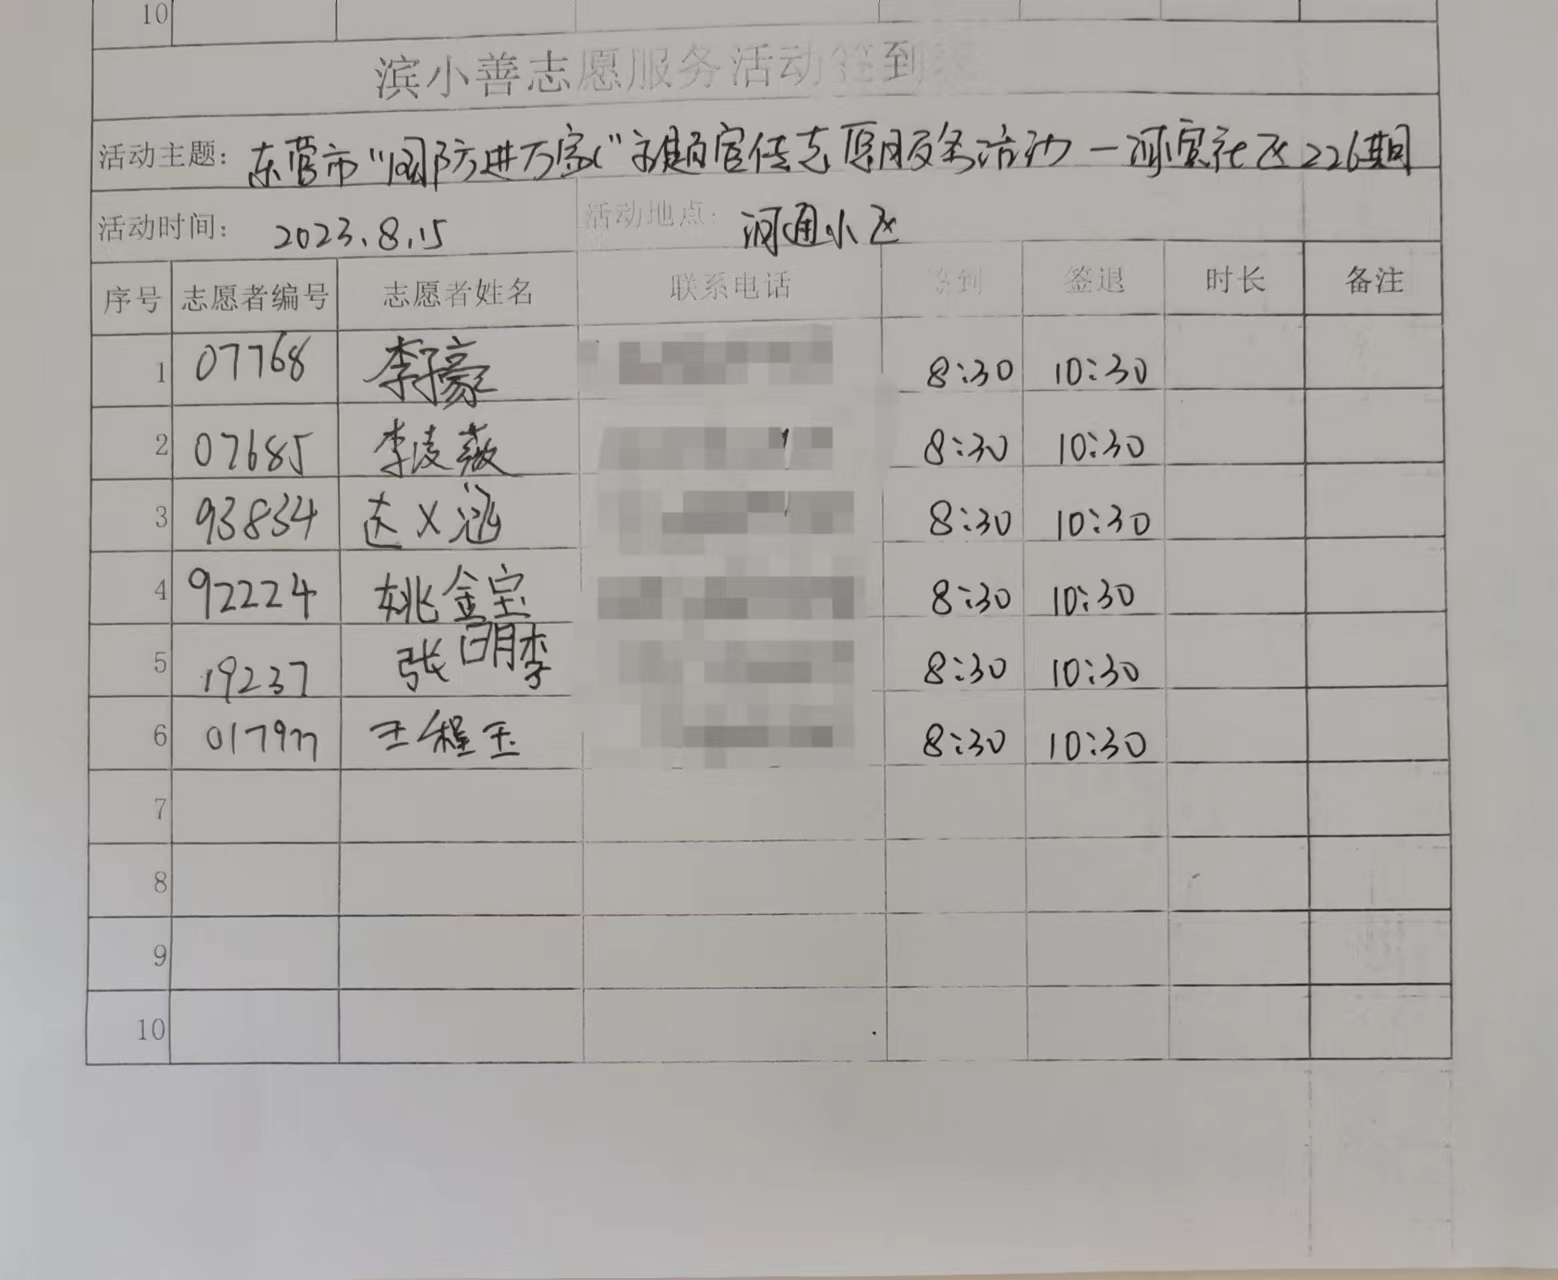 10
滨小善志愿服务活动签到
活动主题: 东营市“国防进万家”主题宣传志愿服务活动一河宽社区226期
活动时间: 2023.8.15 活动地点: 河通小区
序号 志愿者编号 志愿者姓名 联系电话 签到 签退 时长 备注
1 07768 李子豪 8:30 10:30
2 07685 李凌薇 8:30 10:30
3 93834 达义涵 8:30 10:30
4 92224 姚金宝 8:30 10:30
5 19237 张明李 8:30 10:30
6 王程玉 8:30 10:30
7
8
9
10